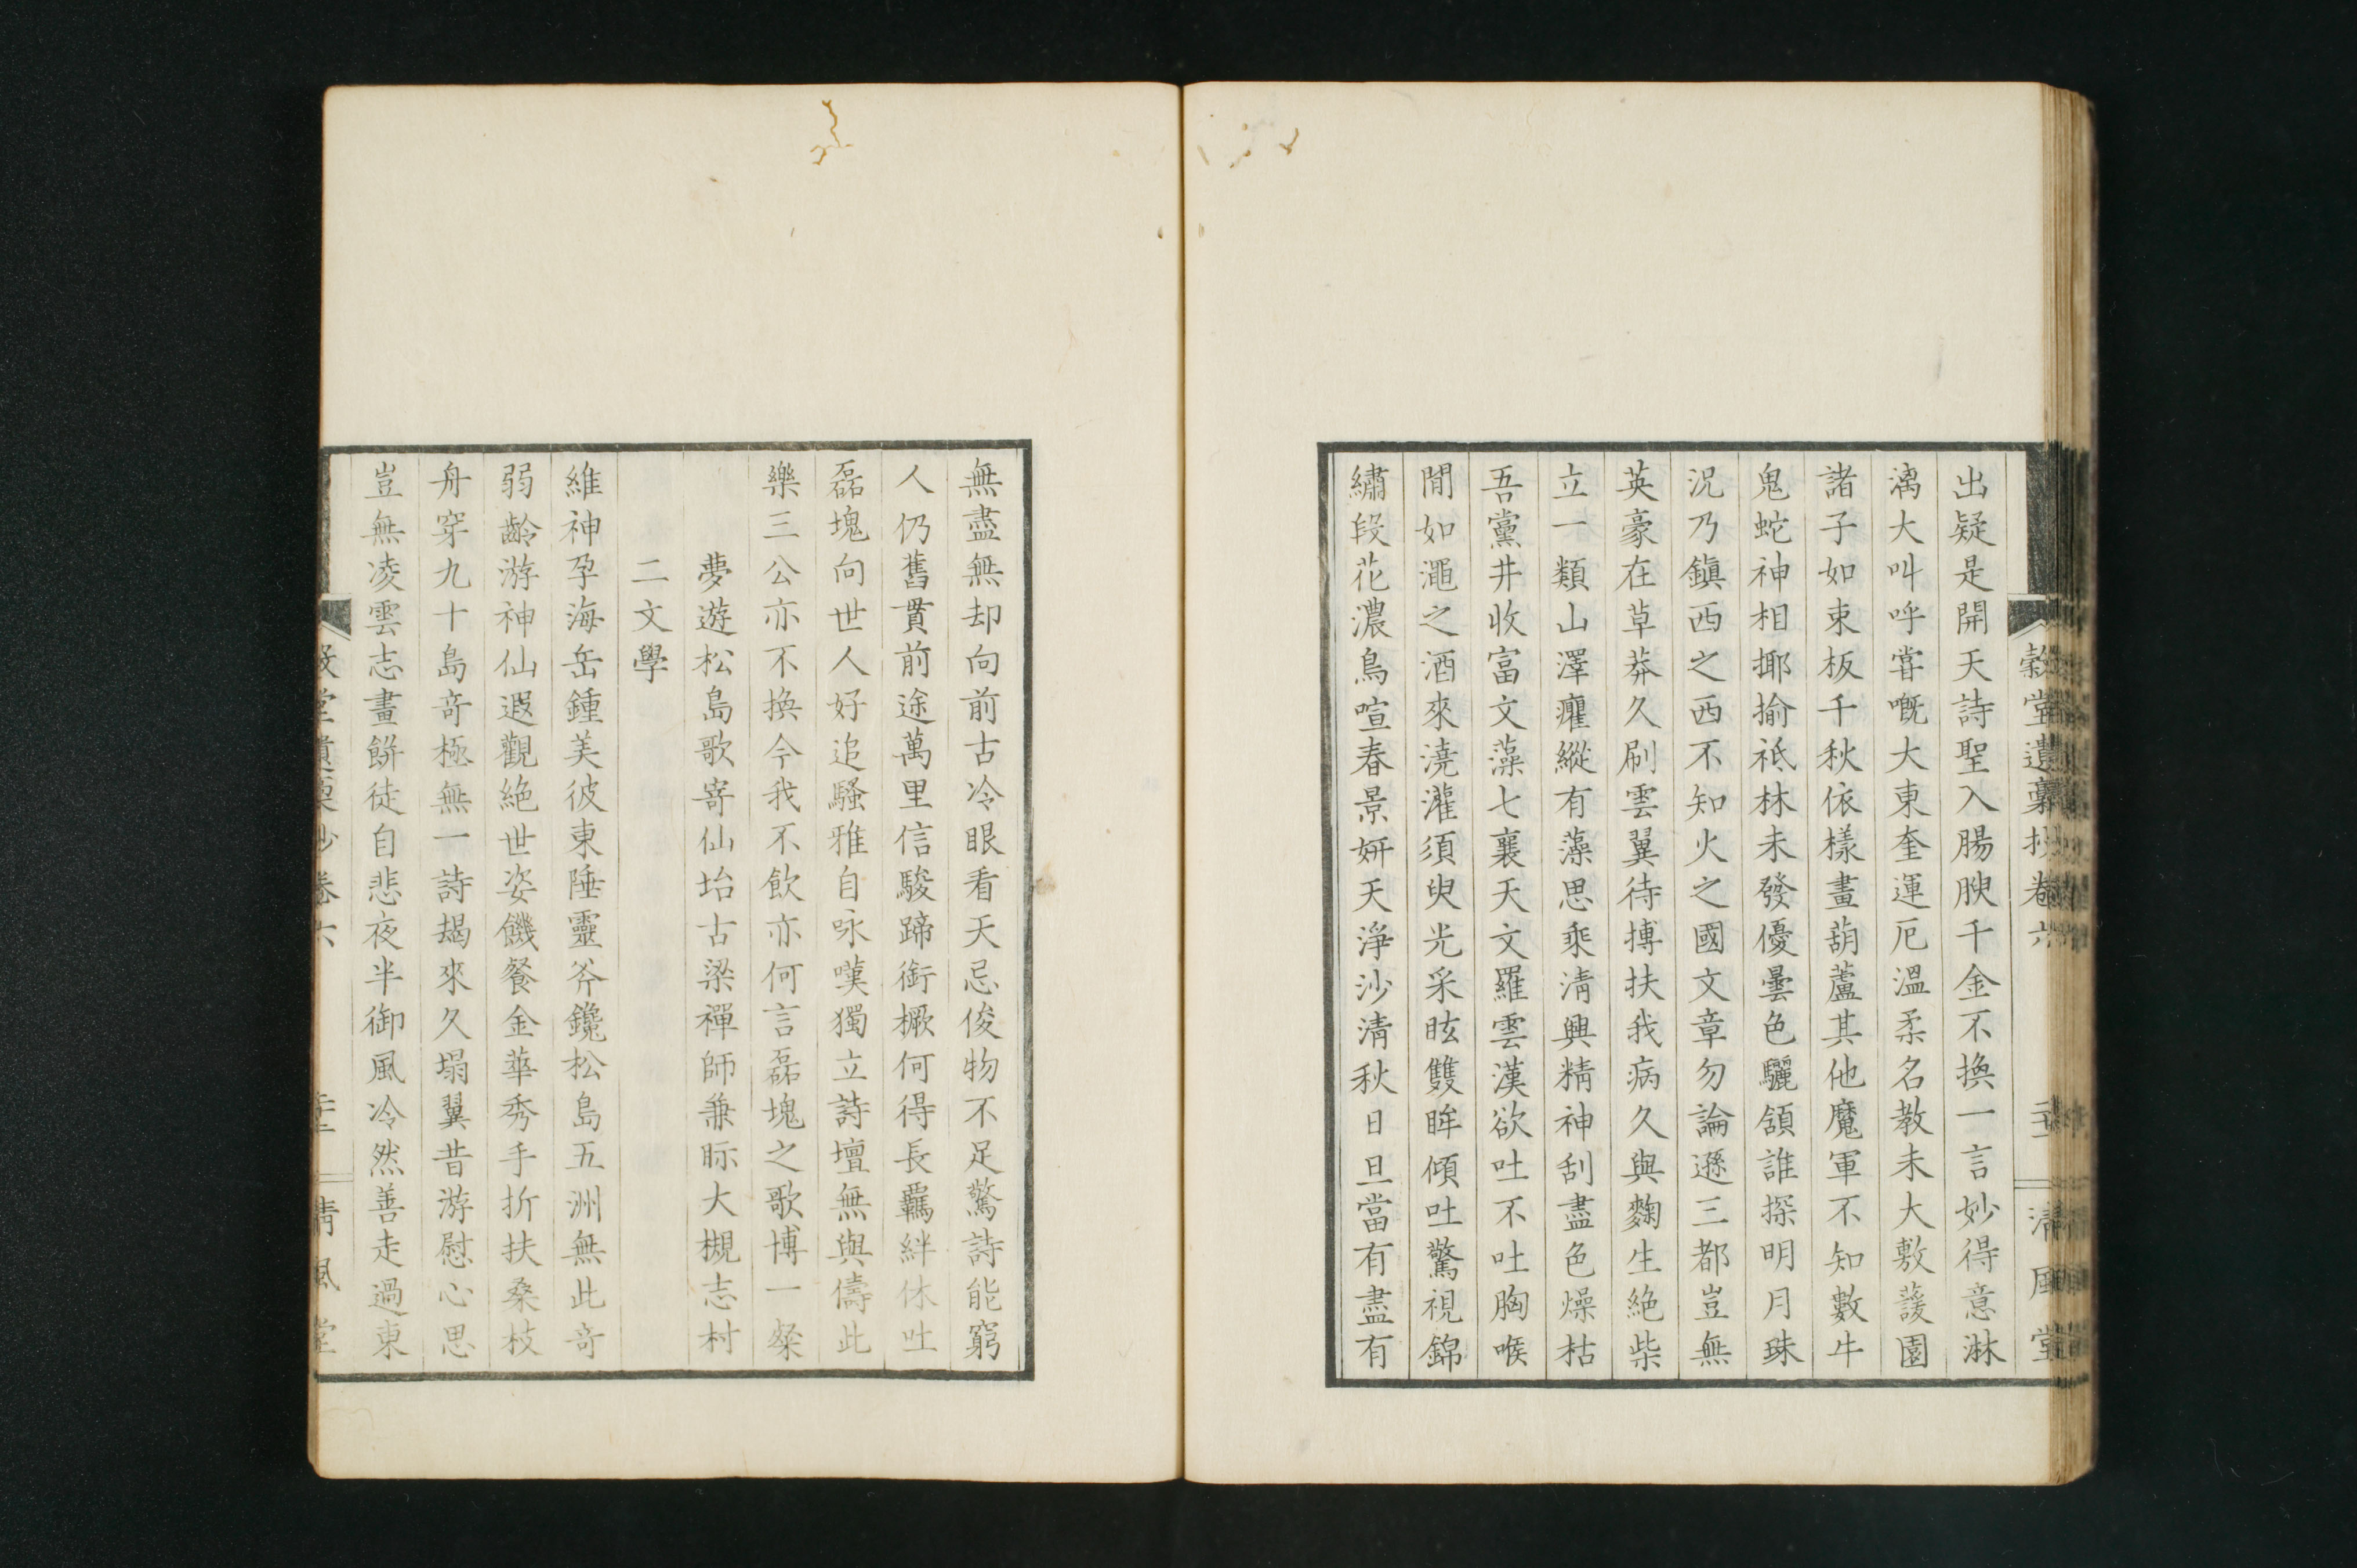 穀堂遺稾抄卷六 清風堂
出疑是開天詩聖入腸腴千金不換一言妙得意淋
漓大叫呼嘗嘅大東奎運厄溫柔名教未大敷蘐園
諸子如束板千秋依樣畫葫蘆其他魔軍不知數牛
鬼蛇神相揶揄祗林未發優曇色驪頷誰探明月珠
況乃鎭西之西不知火之國文章勿論遜三都豈無
英豪在草莽久刷雲翼待搏扶我病久與麴生絶柴
立一類山澤癯縱有藻思乘淸興精神刮盡色燥枯
吾黨井收富文藻七襄天文羅雲漢欲吐不吐胸喉
閒如澠之酒來澆灌須臾光采眩雙眸傾吐驚視錦
繡段花濃鳥喧春景妍天淨沙淸秋日旦當有盡有
無盡無却向前古冷眼看天忌俊物不足驚詩能窮
人仍舊貫前途萬里信駿蹄銜橛何得長羈絆休吐
磊塊向世人好追騷雅自咏嘆獨立詩壇無與儔此
樂三公亦不換今我不飲亦何言磊塊之歌博一粲
夢遊松島歌寄仙坮古梁禪師兼眎大槻志村
二文學
維神孕海岳鍾美彼東陲靈斧鑱松島五洲無此奇
弱齡游神仙遐觀絶世姿饑餐金華秀手折扶桑枝
舟穿九十島奇極無一詩朅來久塌翼昔游慰心思
豈無凌雲志畫餠徒自悲夜半御風冷然善走過東
穀堂遺稾抄卷六 清風堂